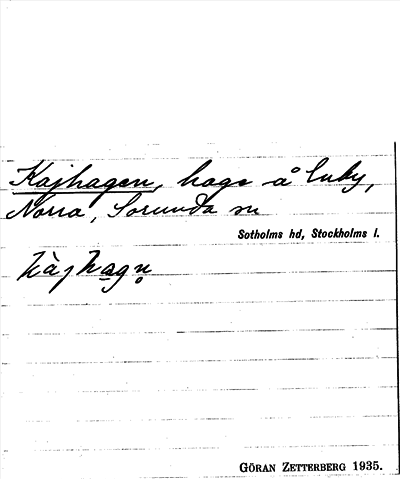 Kajhagen, hage å Enby,
Norra, Sorunda sn
Sotholms hd, Stockholms l.
kàjhagn̥
GÖRAN ZETTERBERG 1935.